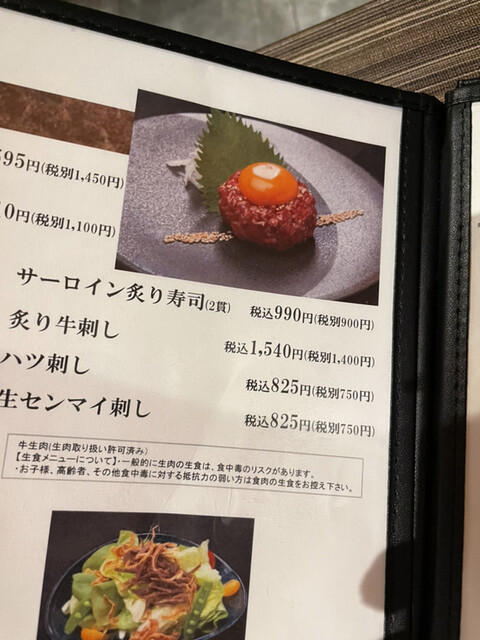 595円(税別1,450円)
0円(税別1,100円)
サーロイン炙り寿司(2貫) 税込990円(税別900円)
炙り牛刺し 税込1,540円(税別1,400円)
ハツ刺し 税込825円(税別750円)
生センマイ刺し 税込825円(税別750円)
牛生肉(生肉取り扱い許可済み)
【生食メニューについて】・一般的に生肉の生食は、食中毒のリスクがあります。
・お子様、高齢者、その他食中毒に対する抵抗力の弱い方は食肉の生食をお控え下さい。